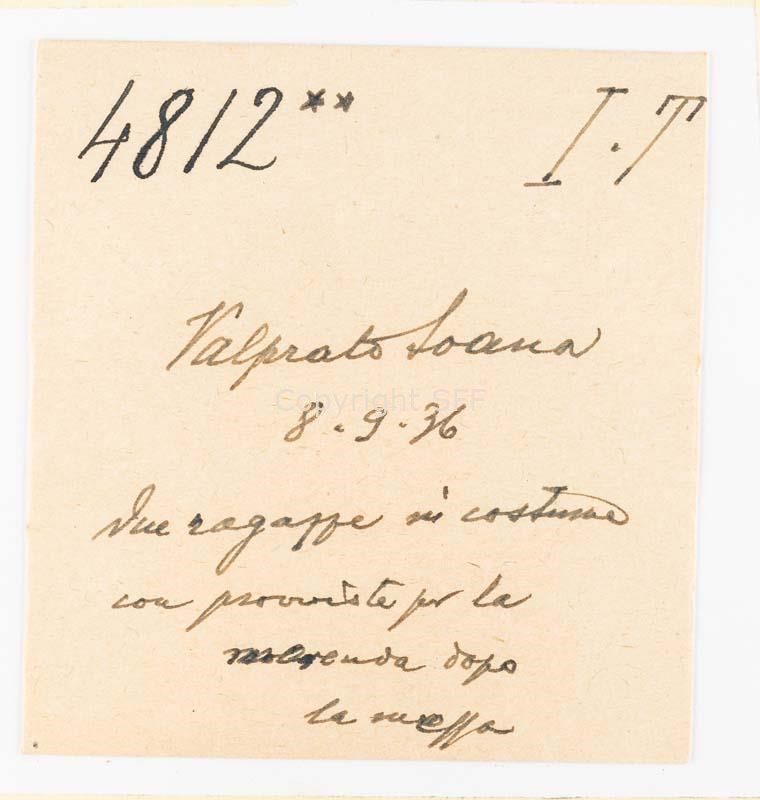 4812** I.T
Valprato Soana
Copyright SFF
8.9.36
due ragazze in costume
con provviste per la
merenda dopo
la messa